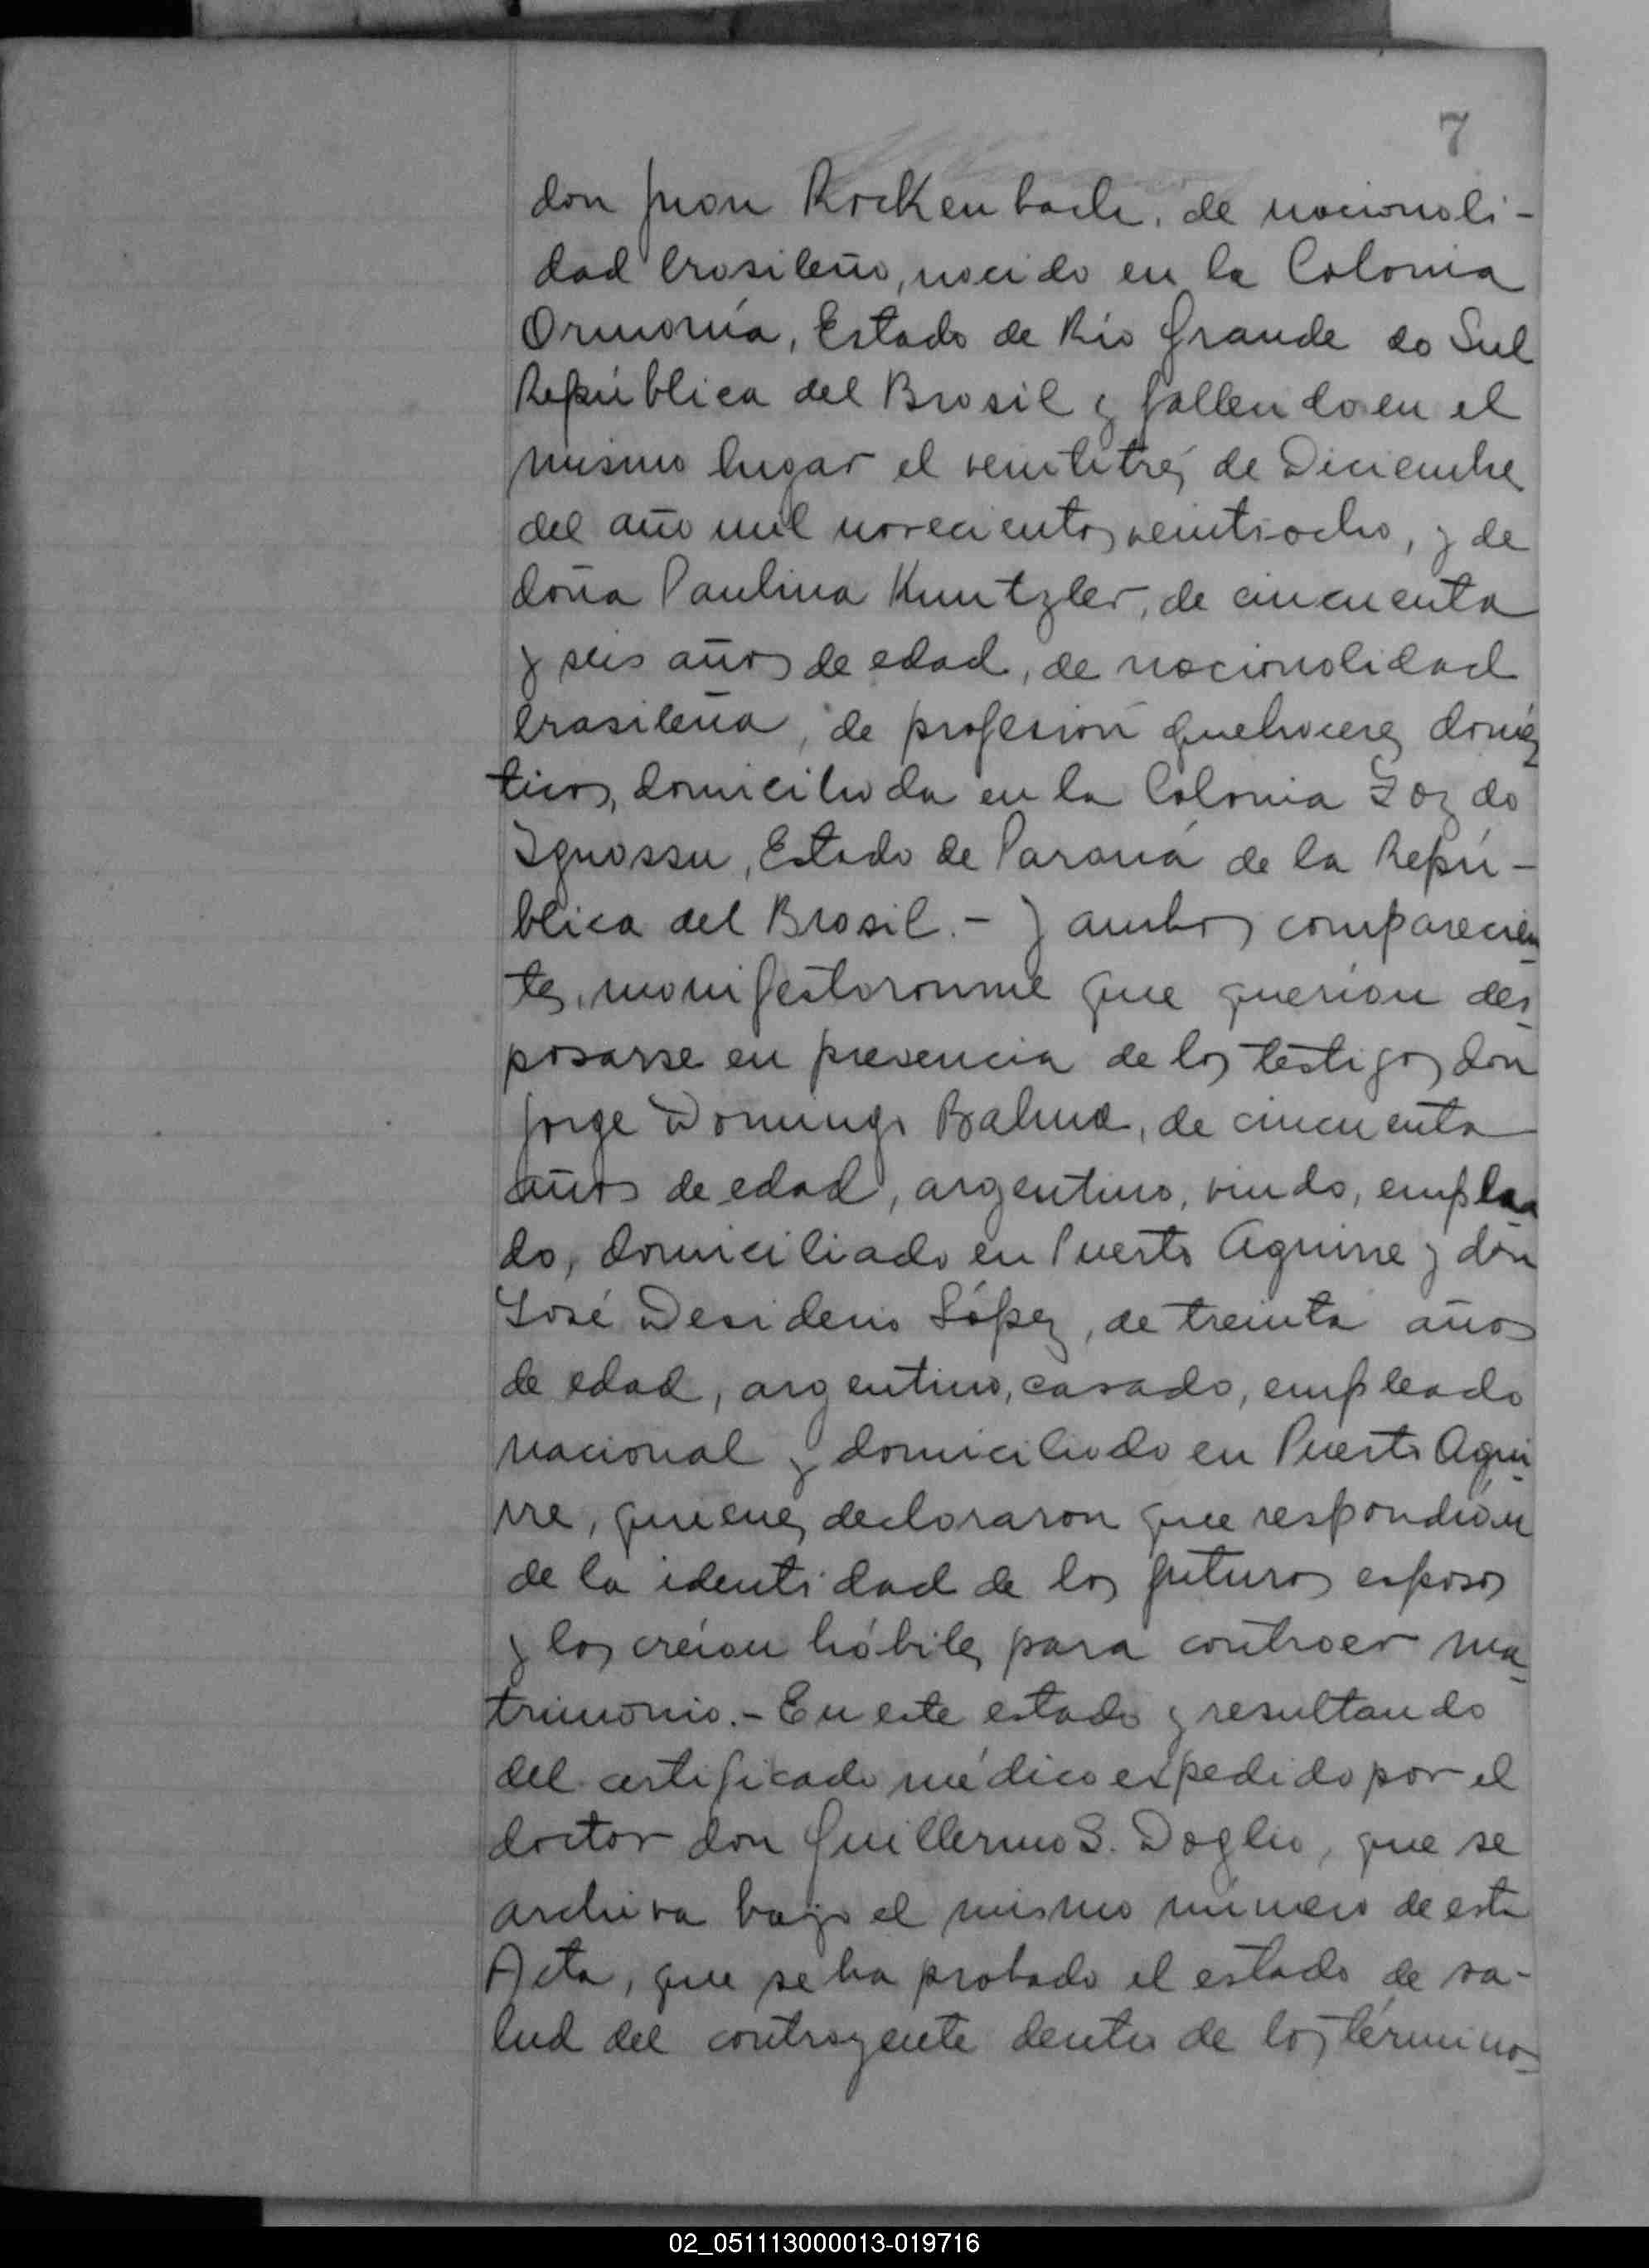 7
don Juan Rockenbach, de nacionali-
dad brasileño, nacido en la Colonia
Ormonía, Estado de Río Grande do Sul
República del Brasil y fallecido en el
mismo lugar el veintitrés de Diciembre
del año mil novecientos veintiocho, y de
doña Paulina Kuntzler, de cincuenta
y seis años de edad, de nacionalidad
brasileña, de profesión quehaceres domés
ticos, domiciliada en la Colonia Foz do
Iguassu, Estado de Paraná de la Repú-
blica del Brasil.- Y ambos comparecien
tes, manifestaronme que querían des
posarse en presencia de los testigos don
Jorge Domingo Balmd, de cincuenta
años de edad, argentino, viudo, emplea
do, domiciliado en Puerto Aguirre y don
José Desiderio López, de treinta años
de edad, argentino, casado, empleado
nacional y domiciliado en Puerto Agui
rre, quienes declararon que respondían
de la identidad de los futuros esposos
y los creían hábiles para contraer ma
trimonio.- En este estado y resultando
del certificado médico expedido por el
doctor don Guillermo S. Doglio, que se
archiva bajo el mismo número de esta
Acta, que se ha probado el estado de sa-
lud del contrayente dentro de los términos
02_051113000013-019716